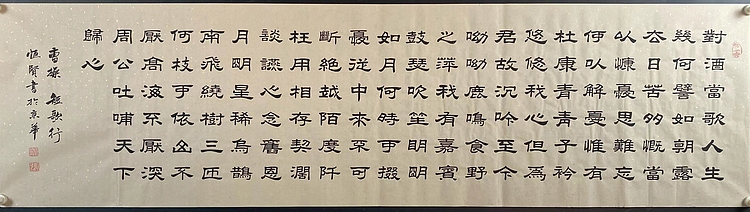 對酒當歌人生
幾何譬如朝露
去日苦多慨當
以慷憂思難忘
何以解憂惟有
杜康青青子衿
悠悠我心但為
君故沉吟至今
呦呦鹿鳴食野
之萍我有嘉賓
鼓瑟吹笙明明
如月何時可掇
憂從中來不可
斷絕越陌度阡
枉用相存契闊
談讌心念舊恩
月明星稀烏鵲
南飛繞樹三匝
何枝可依山不
厭高海不厭深
周公吐哺天下
歸心
曹操 短歌行
恒賢書於京華